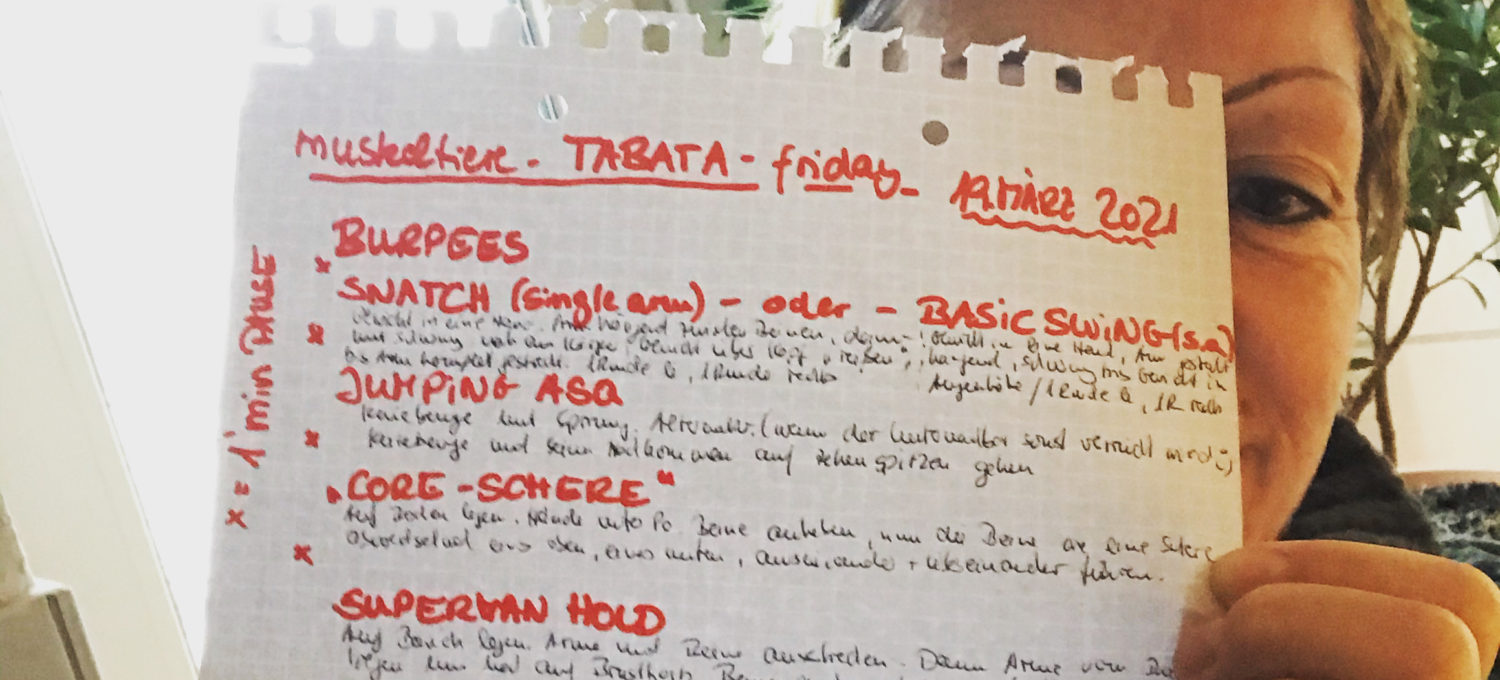 muskeltiere - TABATA - friday - 19. MÄRZ 2021
BURPEES
x = 1' min PAUSE
x
SNATCH (single arm) - oder - BASIC SWING (s.a)
in eine Hand, Arm hängend zwischen Beinen, dann
in eine Hand, Arm gestreckt
x
und Schwung nah am Körper, Gewicht über Kopf „reißen“,
hängend, Schwung bis Gewicht in
bis Arm komplett gestreckt. 1 Runde li, 1 Runde rechts
Augenhöhe / 1 Runde li, 1R rechts
JUMPING ASQ
Kniebeuge mit Sprung. Alternativ: (wenn der sonst verrückt wird ;)
x
Kniebeuge und beim Hochkommen auf Zehenspitzen gehen
„CORE-SCHERE“
Auf Boden legen. Hände unter Po Beine anheben, nun die Beine wie eine Schere
x
abwechselnd eins oben, eines unten, auseinander + übereinander führen.
SUPERMAN HOLD
Auf Bauch legen. Arme und Beine ausstrecken. Dann Arme vom
liegen nun nur auf